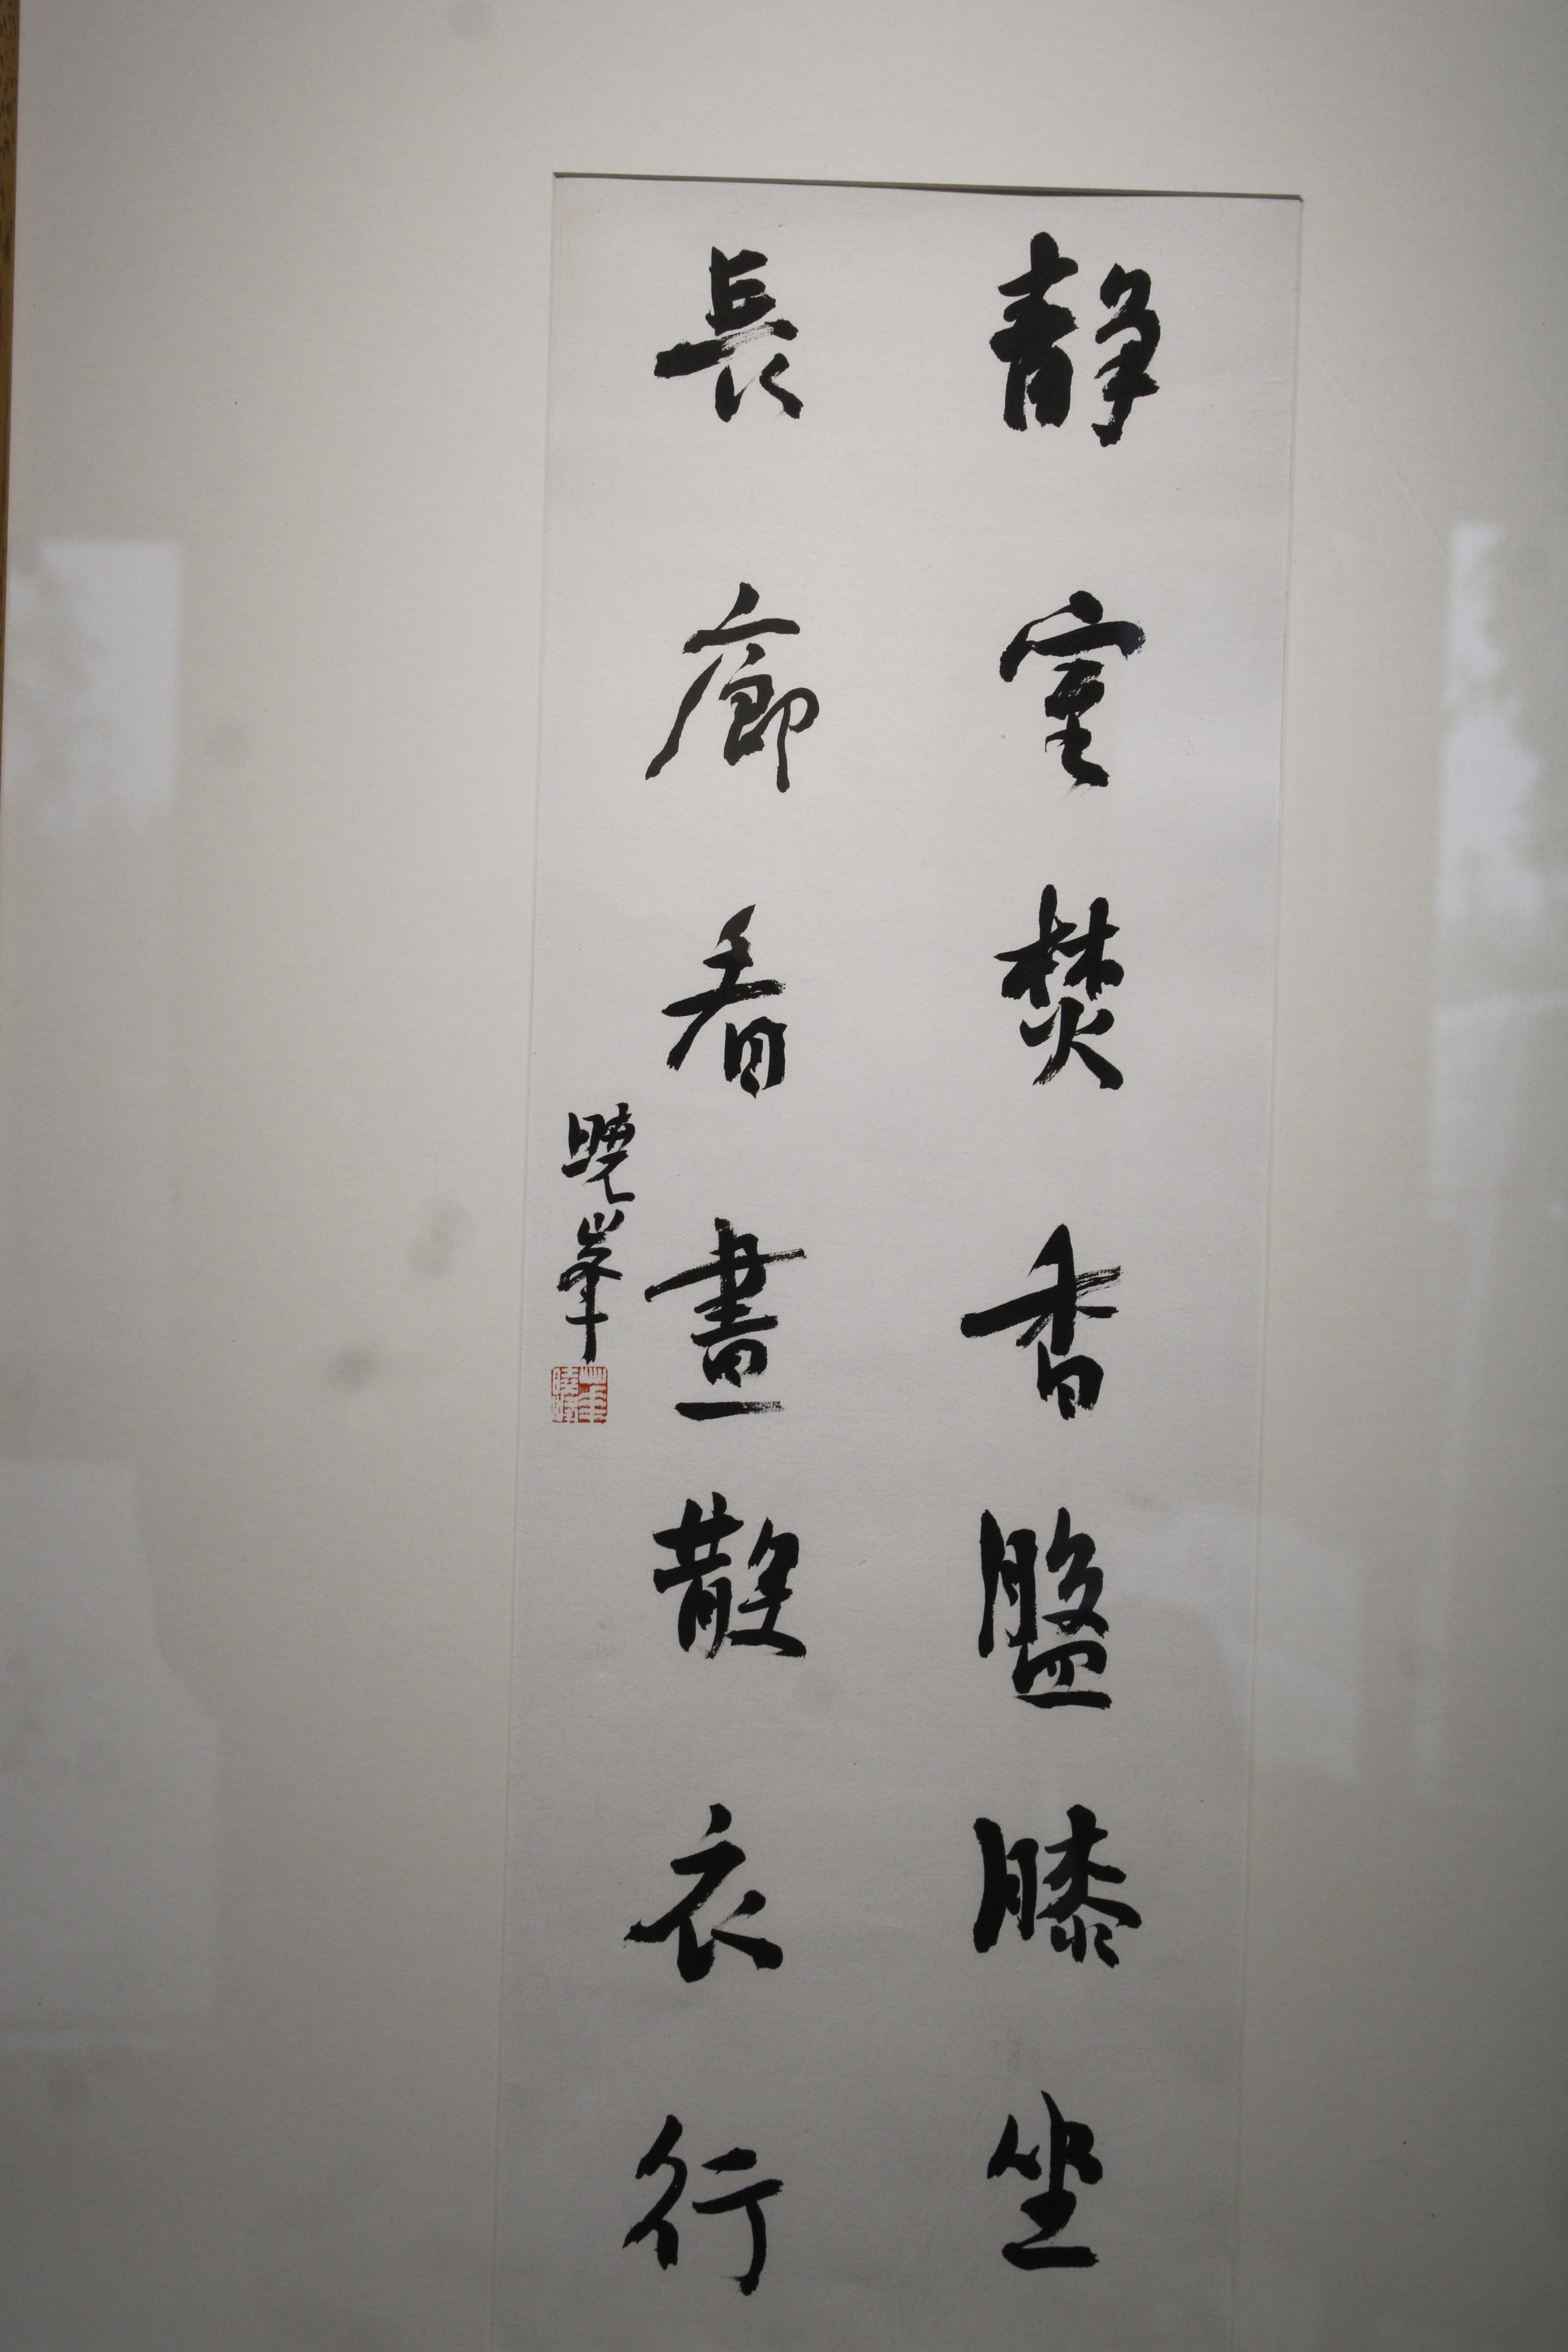 静室焚香盤膝坐
長廊看畫散衣行
曉峯